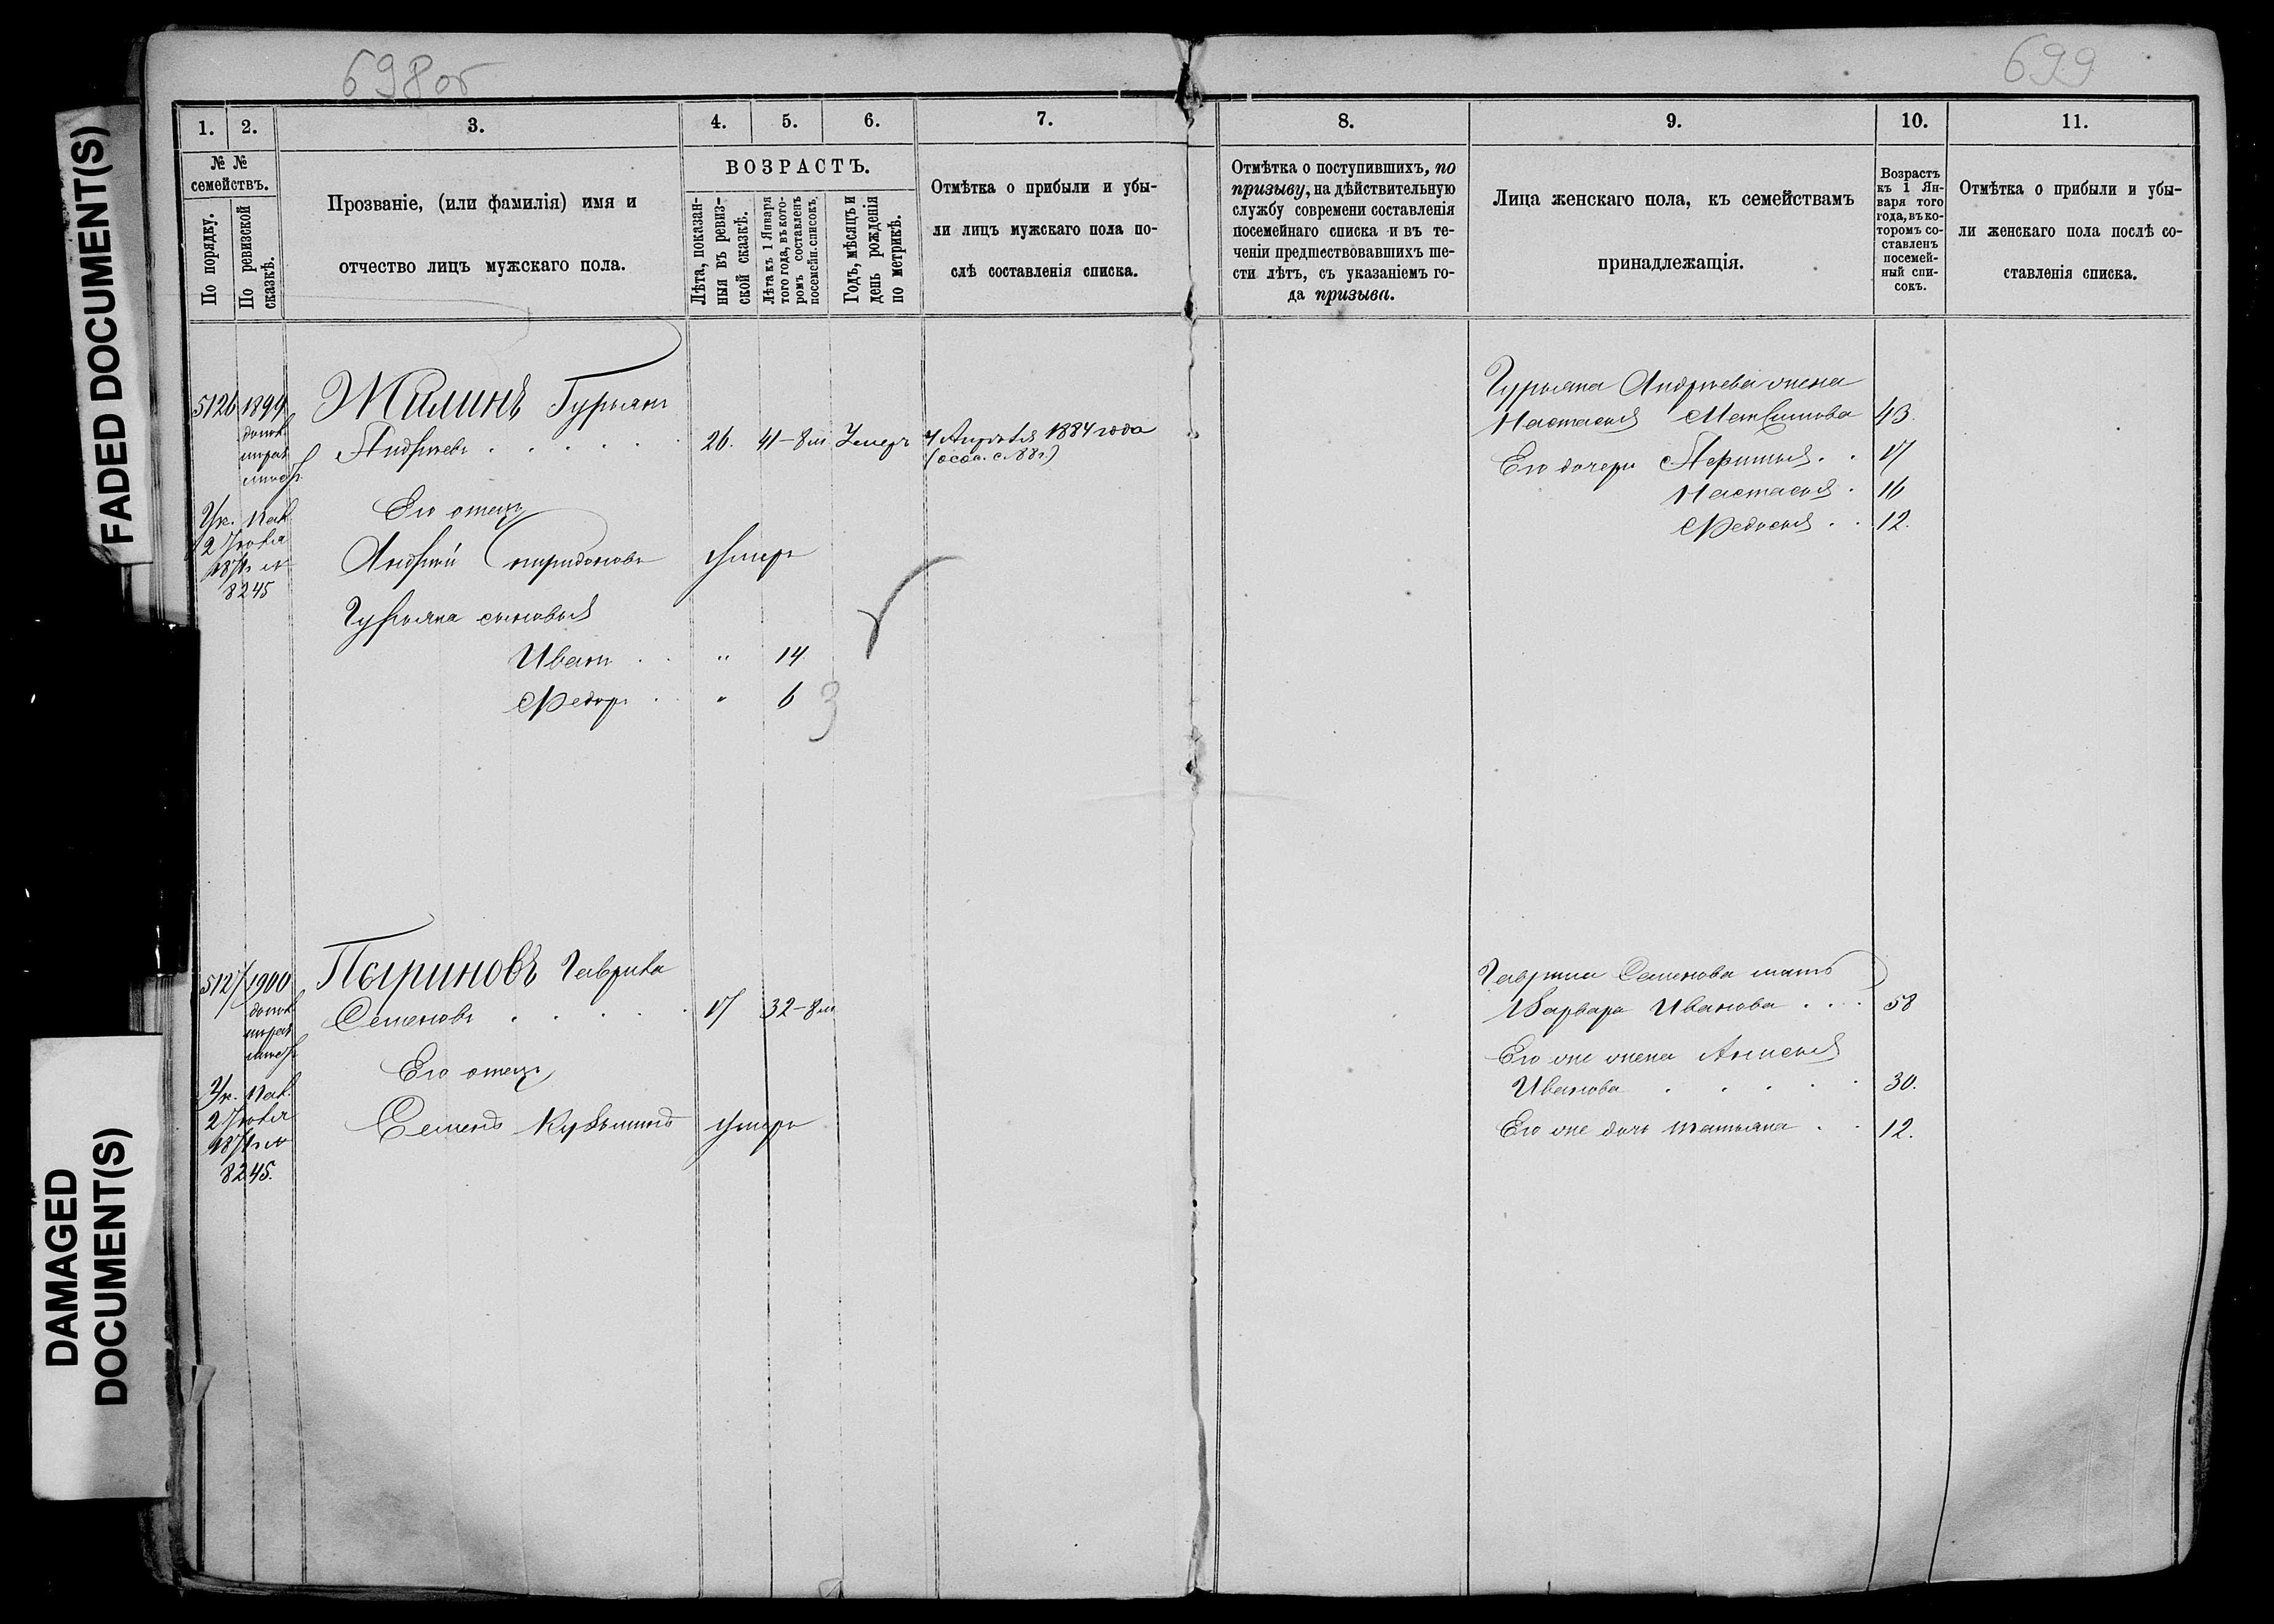 698об
699
FADED DOCUMENT(S)
DAMAGED
DOCUMENT(S)
1.
2.
3.
4.
5.
6.
7.
№ №
семействъ.
По порядку.
По ревизской
сказкѣ.
Прозваніе, (или фамилія) имя и
отчество лицъ мужскаго пола.
ВОЗРАСТЪ.
Лѣта, показан-
ныя въ ревиз-
ской сказкѣ.
Лѣта къ 1 Января
того года, въ кото-
ромъ составленъ
посемейн. списокъ.
Годъ, мѣсяцъ и
день рожденія
по метрикѣ.
Отмѣтка о прибыли и убы-
ли лицъ мужскаго пола по-
слѣ составленія списка.
5126 1899
Жилинъ Гурьянъ
Андреевъ . . . . . 26. 41-8м Умеръ 4 Апрѣля 1884 года
Ук. Каз.
8245
Его отецъ
Андрей Спиридоновъ умеръ
Гурьяна сыновья
Иванъ . . " 14
Федоръ . . " 6
3
5127 1900
Пыриновъ Гаврила
Семеновъ . . . . . 17 32-8м
Ук. Каз.
8245.
Его отецъ
Семенъ Кузьминъ умеръ
8.
9.
10.
11.
Отмѣтка о поступившихъ, по
призыву, на дѣйствительную
службу современи составленія
посемейнаго списка и въ те-
ченіи предшествовавшихъ ше-
сти лѣтъ, съ указаніемъ го-
да призыва.
Лица женскаго пола, къ семействамъ
принадлежащія.
Возрастъ
къ 1 Ян-
варя того
года, въ ко-
торомъ со-
ставленъ
посемей-
ный спи-
сокъ.
Отмѣтка о прибыли и убы-
ли женскаго пола послѣ со-
ставленія списка.
Гурьяна Андреева жена
Настасья Максимова 43.
Его дочери 17
Настасья . 16
Федосья . . 12.
Гаврилы Семенова мать
Варвара Иванова . . . 58
Его же жена Анисья
Иванова . . . . . 30.
Его же дочь Татьяна . . 12.